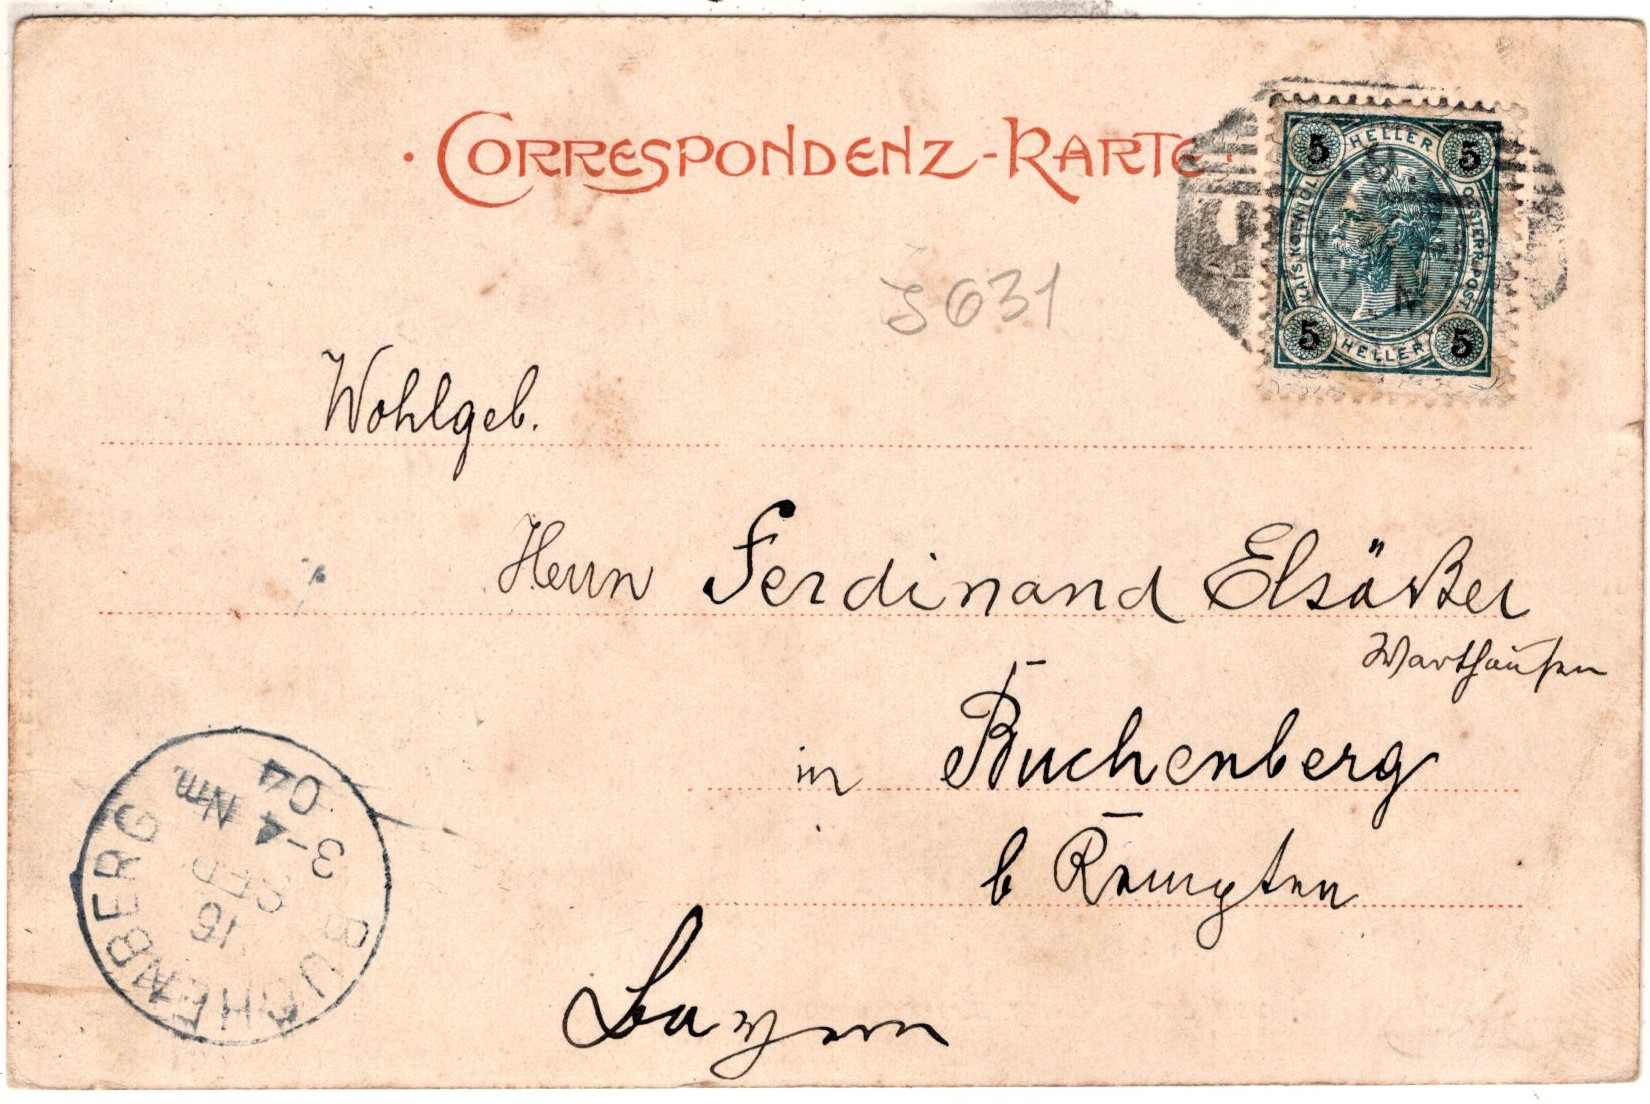 · CORRESPONDENZ-KARTE ·
5 HELLER 5
KAIS. KOENIGL. OESTERR. POST.
5 HELLER 5
9
M
S 631
Wohlgeb.
Herrn Ferdinand Elsäßer
Warthausen
in Buchenberg
b Kempten
Bayern
BUCHENBERG
15
SEP
3-4 Nm.
04